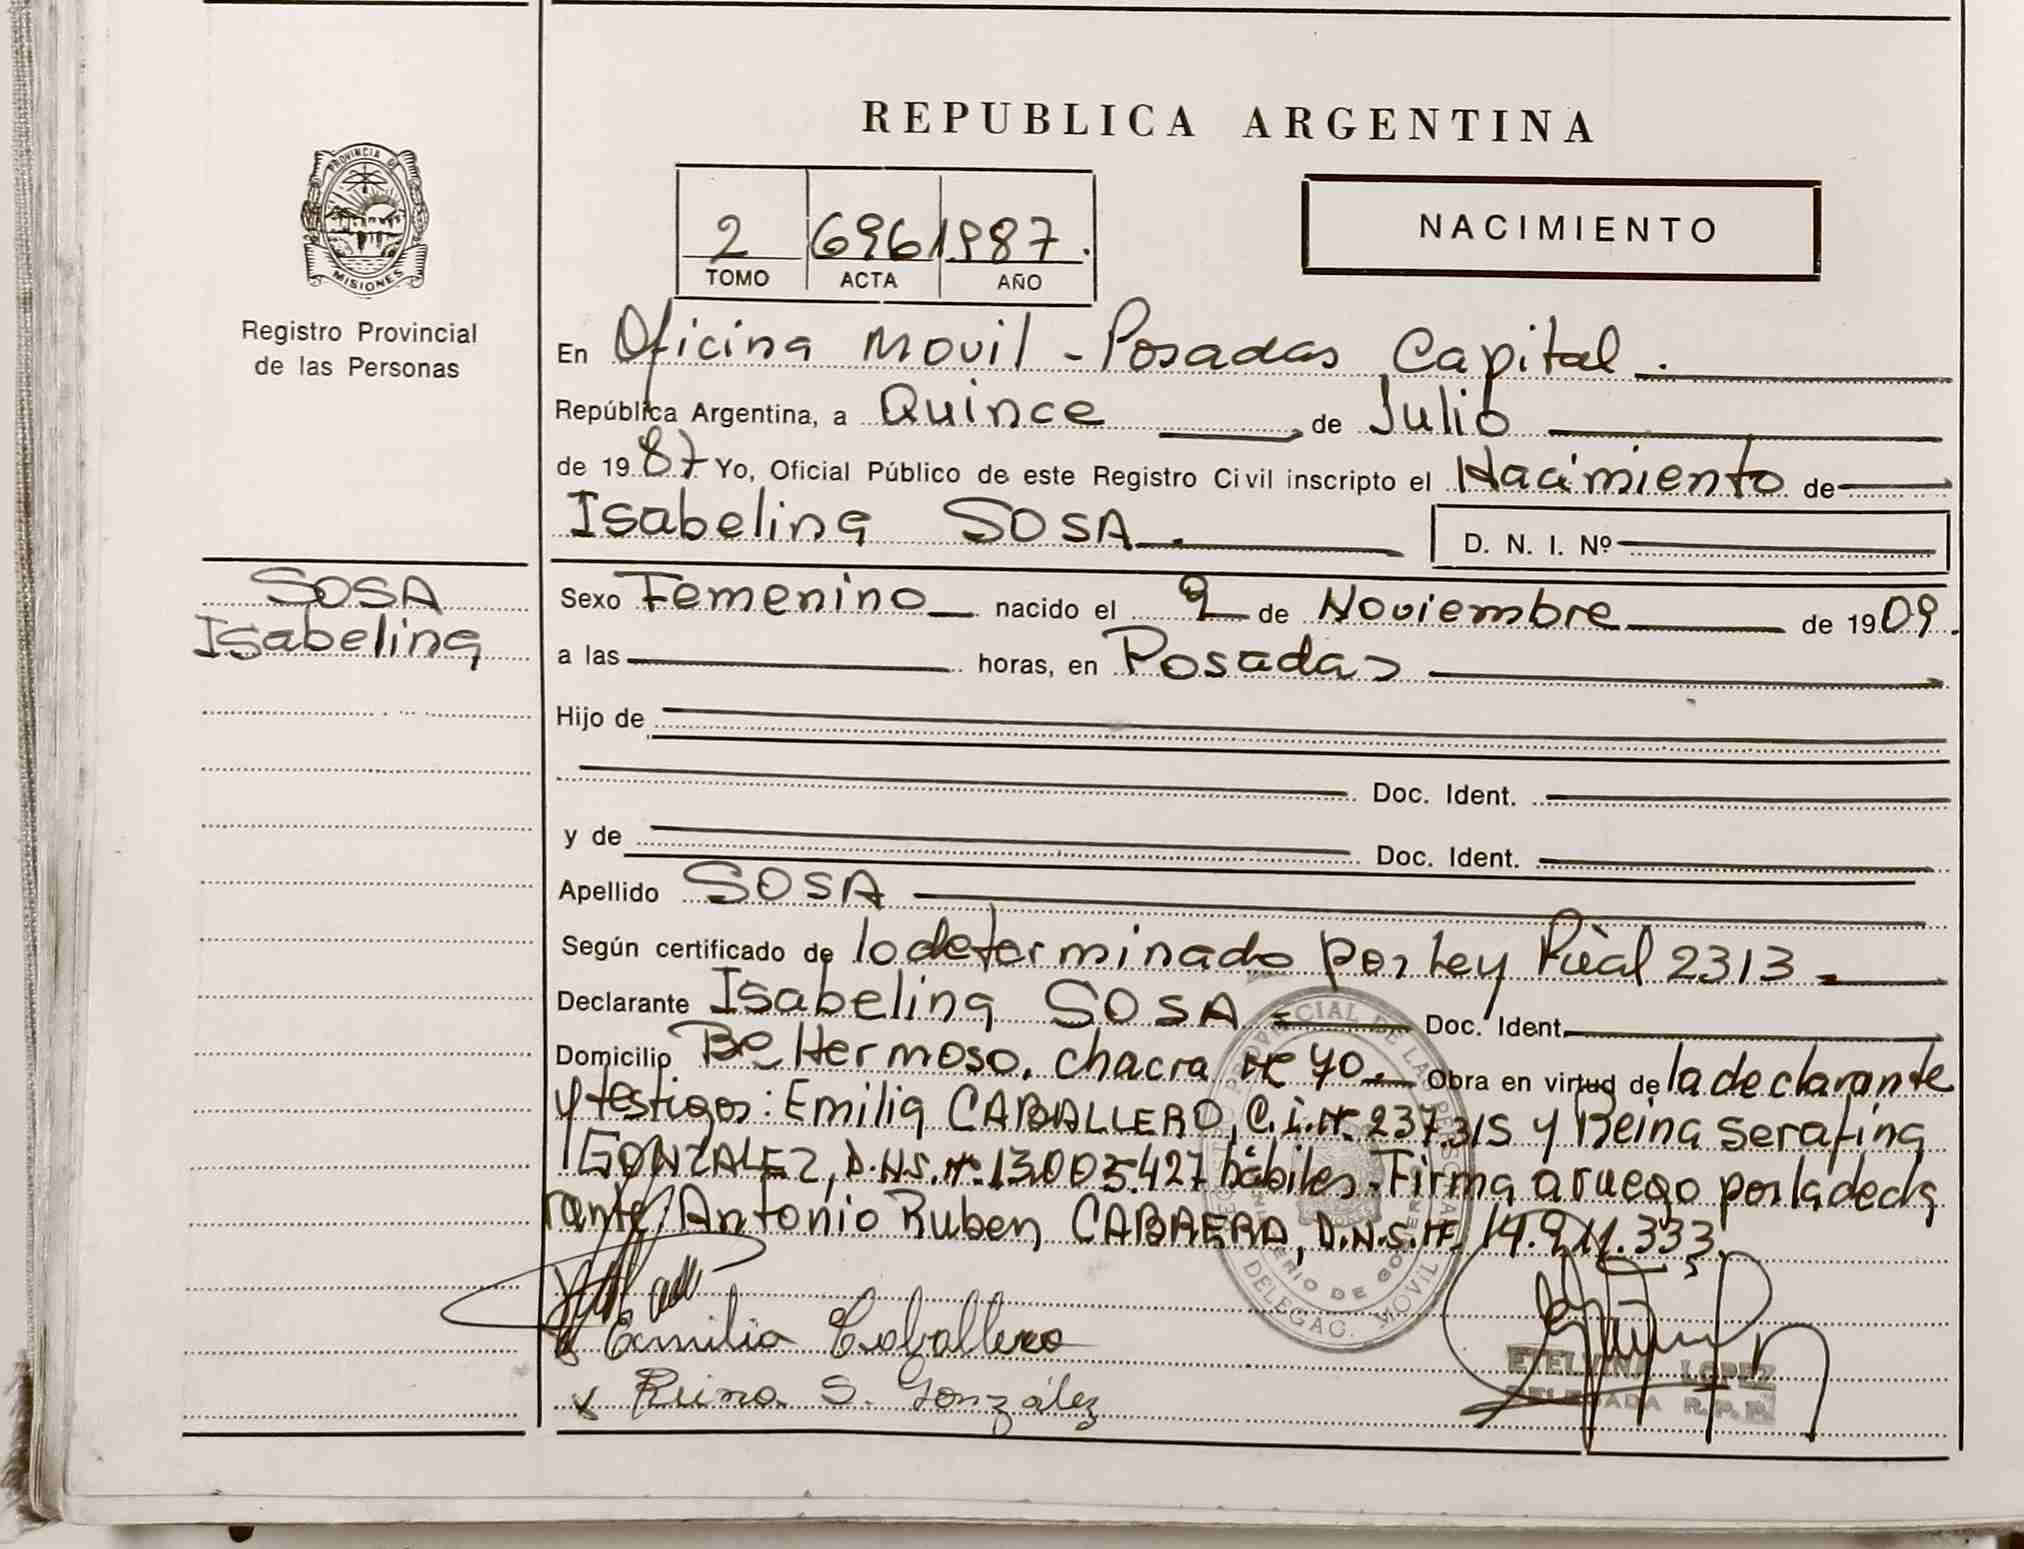 REPUBLICA ARGENTINA
PROVINCIA DE
MISIONES
Registro Provincial
de las Personas
2 696 1987.
TOMO ACTA AÑO
NACIMIENTO
En Oficina Movil - Posadas Capital.
República Argentina, a Quince de Julio
de 1987 Yo, Oficial Público de este Registro Civil inscripto el Nacimiento de
Isabelina SOSA.
D. N. I. Nº
SOSA
Isabelina
Sexo Femenino nacido el 9 de Noviembre de 1909.
a las horas, en Posadas
Hijo de
Doc. Ident.
y de Doc. Ident.
Apellido SOSA
Según certificado de lo determinado por Ley 2313
Declarante Isabelina SOSA Doc. Ident.
Domicilio Hermoso, chacra 40. Obra en virtud de la declarante
y testigos: Emilia CABALLERO, C.I.Nº 237.315 y Reina Serafina
GONZALEZ, D.N.I.Nº 13.005.427 hábiles. Firma a ruego por la decla
rante, Antonio Ruben CABRERA, D.N.I.Nº 14.911.333.
Emilia Caballero
x Reina S. González
DELEGAC. MOVIL
ETELVINA LOPEZ
DELEGADA R.P.P.